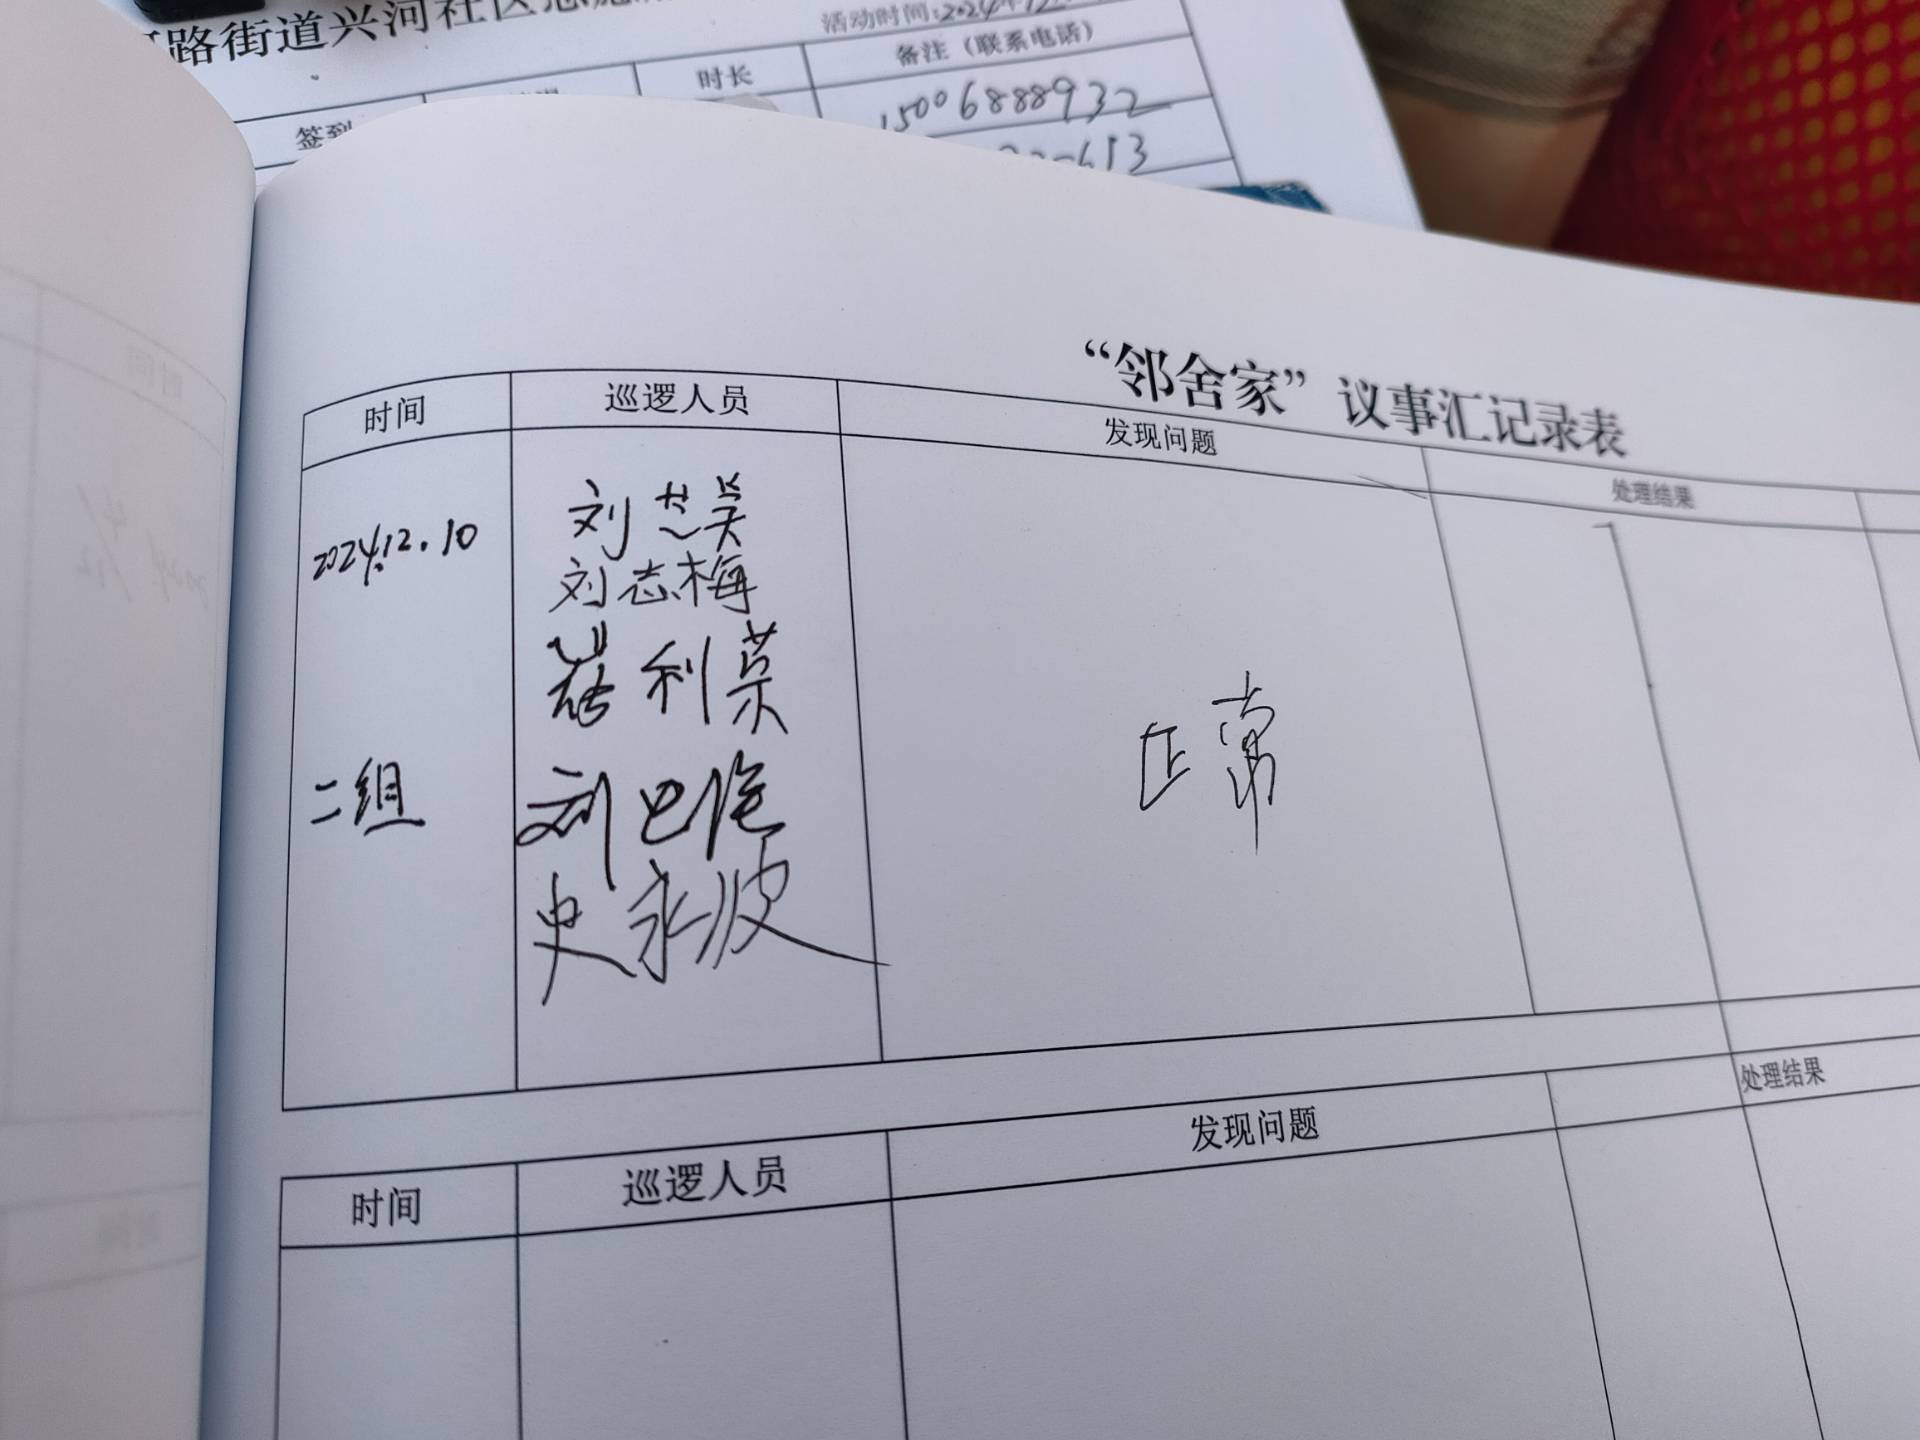 路街道兴河社区志愿
活动时间:2024年12
签到
时长
备注（联系电话）
15006888932
613
“邻舍家”议事汇记录表
时间 巡逻人员 发现问题 处理结果
2024.12.10
刘志英
刘志梅
崔利荣
二组
正常
史永波
时间 巡逻人员 发现问题 处理结果